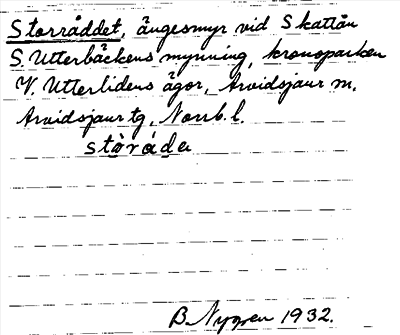 Storråddet, ängesmyr vid Skattån
S. Utterbäckens mynning, kronoparken
V. Utterlidens ägor, Arvidsjaur m.
Arvidsjaur tg, Norrb. l.
stòrȧ́da
B. Nygren 1932.